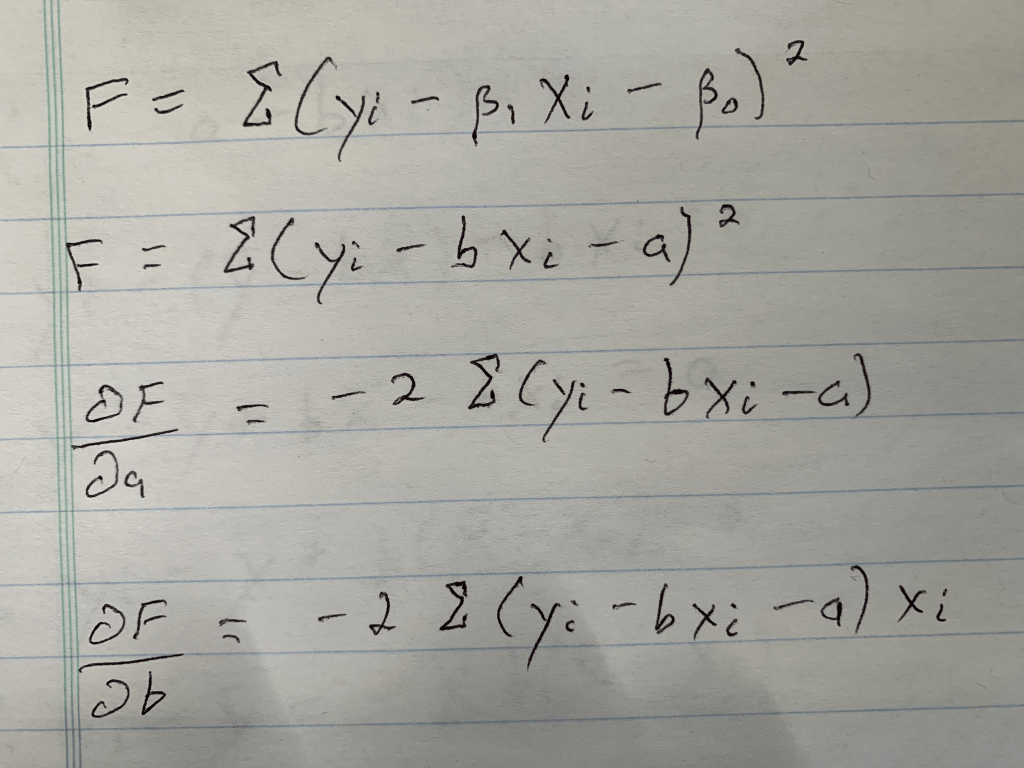 F = Σ(yi - β₁ Xi - β₀)²
F = Σ(yi - b xi - a)²
∂F/∂a = -2 Σ(yi - b xi - a)
∂F/∂b = -2 Σ(yi - b xi - a) xi